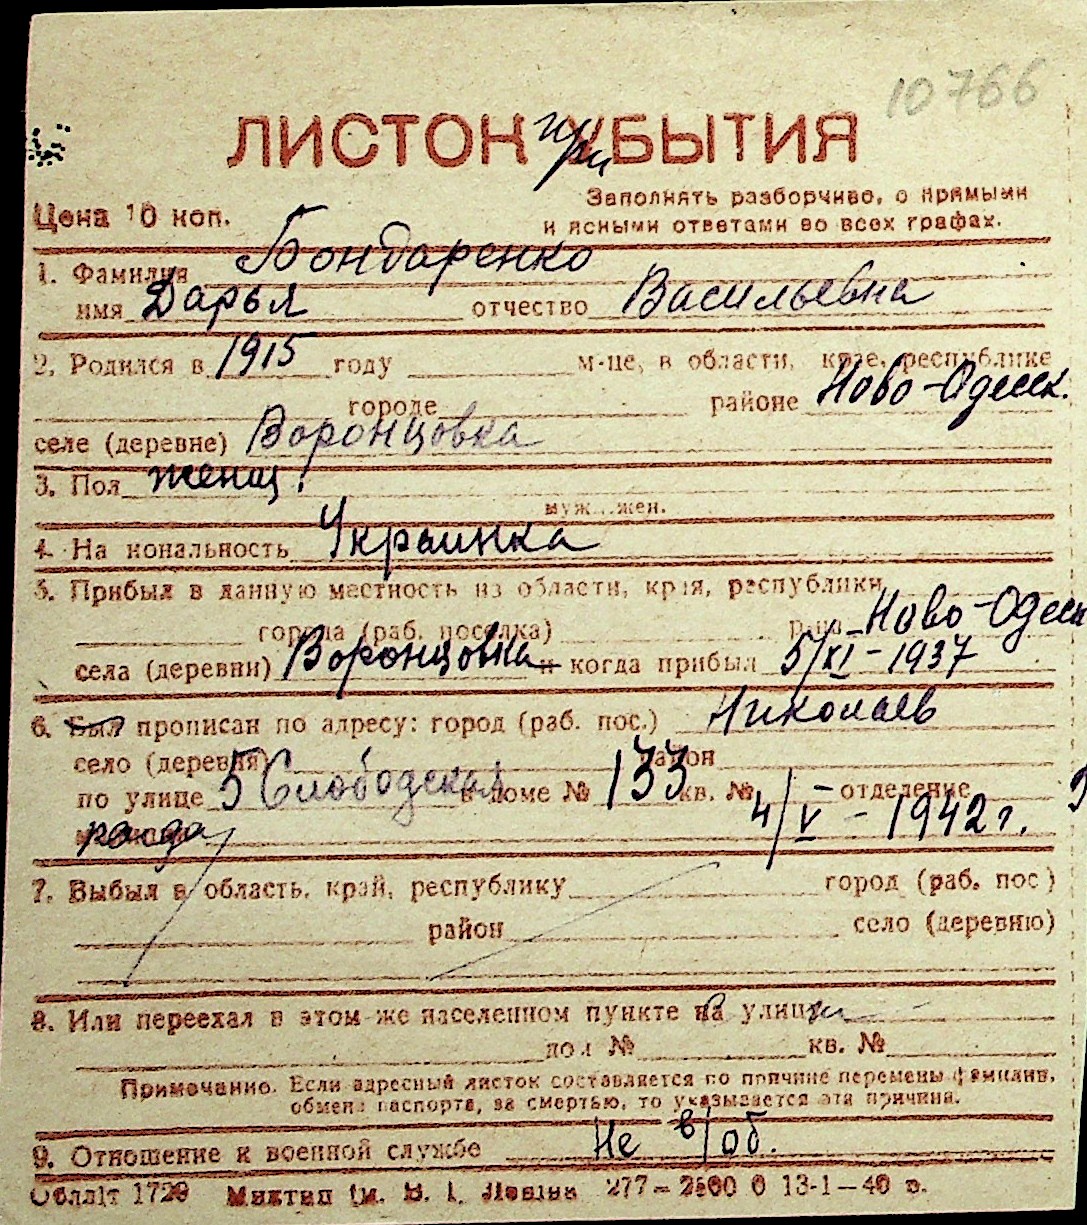 10766
ЛИСТОК при УБЫТИЯ
Цена 10 коп.
Заполнять разборчиво, с прямыми
и ясными ответами во всех графах.
1. Фамилия Бондаренко
имя Дарья отчество Васильевна
2. Родился в 1915 году м-це, в области, крае, республике
городе районе Ново-Одесск.
селе (деревне) Воронцовка
3. Пол женщ.
муж...жен.
4. На нональность Украинка
5. Прибыл в данную местность из области, края, республики
города (раб. поселка) р-на Ново-Одесск
села (деревни) Воронцовка и когда прибыл 5/XI-1937
6. Был прописан по адресу: город (раб. пос.) Николаев
село (деревня) район
по улице 5 Слободская в доме № 133 кв. № отделение
4/V-1942 г.
7. Выбыл в область, край, республику город (раб. пос)
район село (деревню)
8. Или переехал в этом же населенном пункте на улицу
дом № кв. №
Примечание. Если адресный листок составляется по причине перемены фамилии,
обмена паспорта, за смертью, то указывается эта причина.
9. Отношение к военной службе Не в/об.
Обллiт 1729 Миктип iм. В. I. Ленiна 277-2500 0 13-1-40 р.